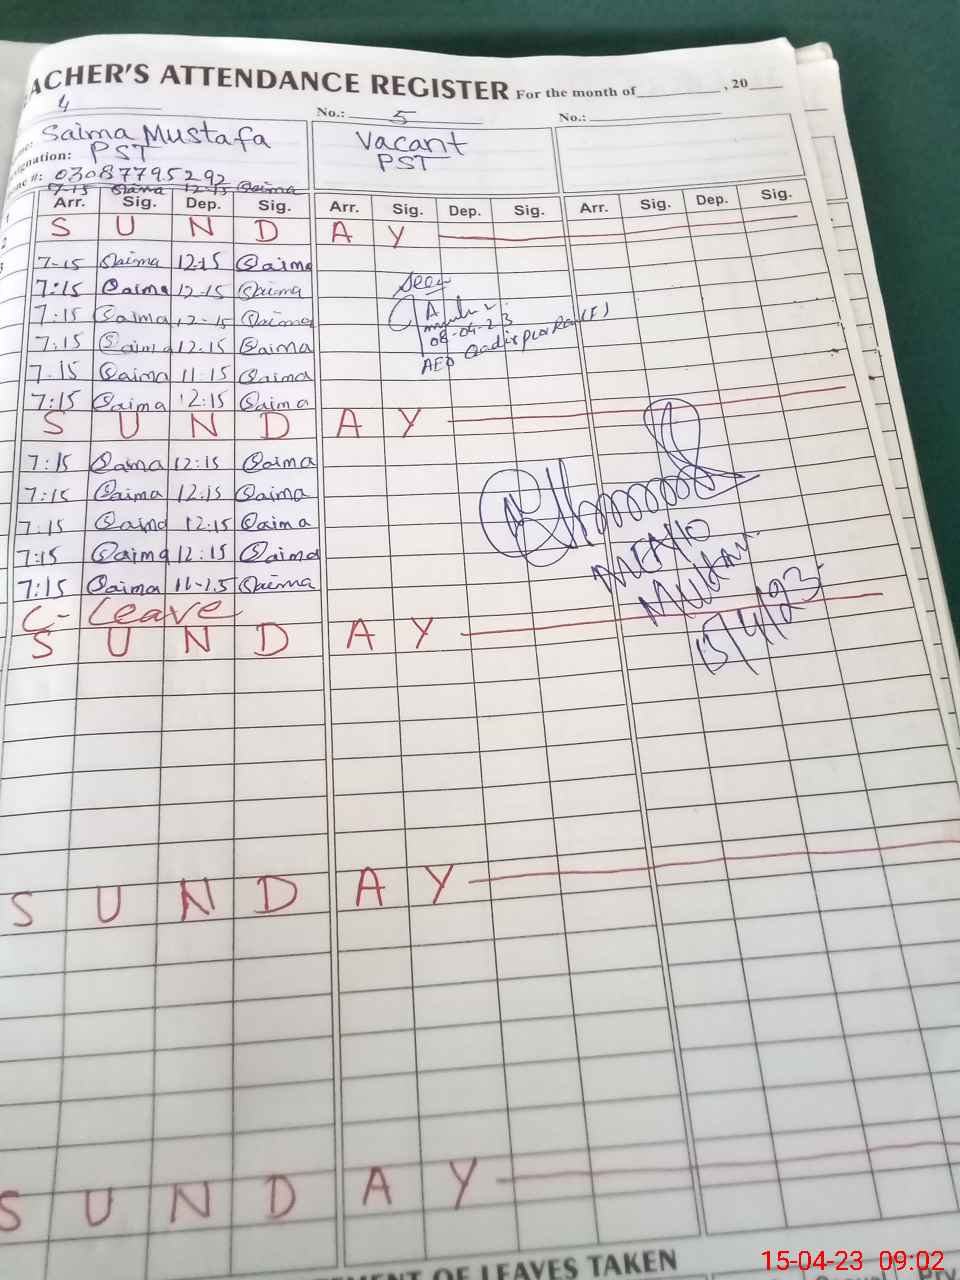 ACHER'S ATTENDANCE REGISTER For the month of , 20
4 No.: 5 No.:
Saima Mustafa Vacant
signation: PST PST
#: 03087795292
7-15 Saima 12-15 Saima
Arr. Sig. Dep. Sig. Arr. Sig. Dep. Sig. Arr. Sig. Dep. Sig.
S U N D A Y
7-15 Saima 12-15 Saima
7:15 Saima 12-15 Saima
7:15 Saima 12-15 Saima
7:15 Saima 12.15 Saima
7.15 Saima 11.15 Saima
7:15 Saima 12:15 Saima
Seen
08-04-23
AEO Qadirpur Ran (F)
S U N D A Y
7:15 Saima 12:15 Saima
7:15 Saima 12:15 Saima
7:15 Saima 12:15 Saima
7:15 Saima 12:15 Saima
7:15 Saima 11-15 Saima
C- Leave
Multan
15/4/23
S U N D A Y
S U N D A Y
S U N D A Y
OF LEAVES TAKEN
15-04-23 09:02